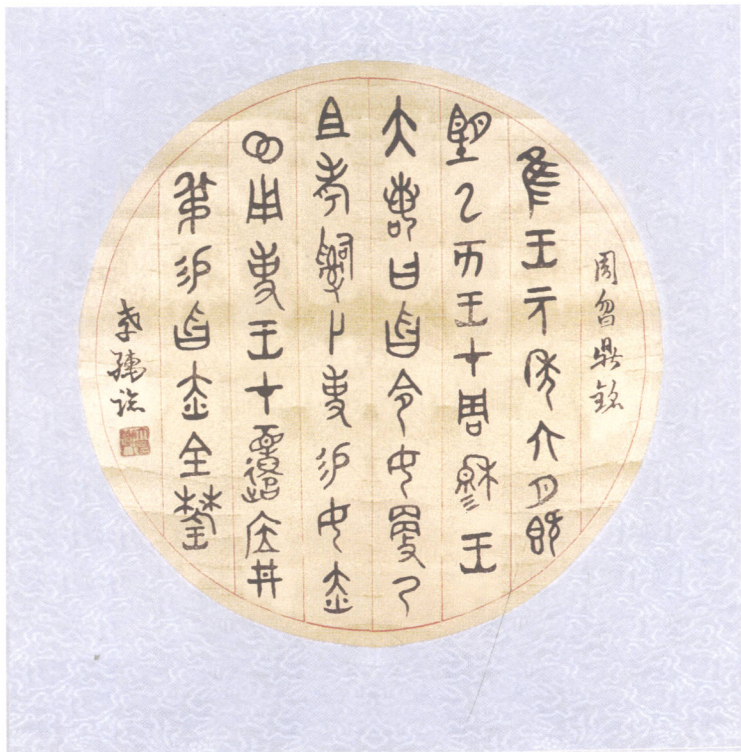 周曶鼎銘
隹王元年六月既
望乙亥王才周穆王
大曰曶令女更乃
且考𤔲卜事易女赤
用事王才应井
叔易曶赤金